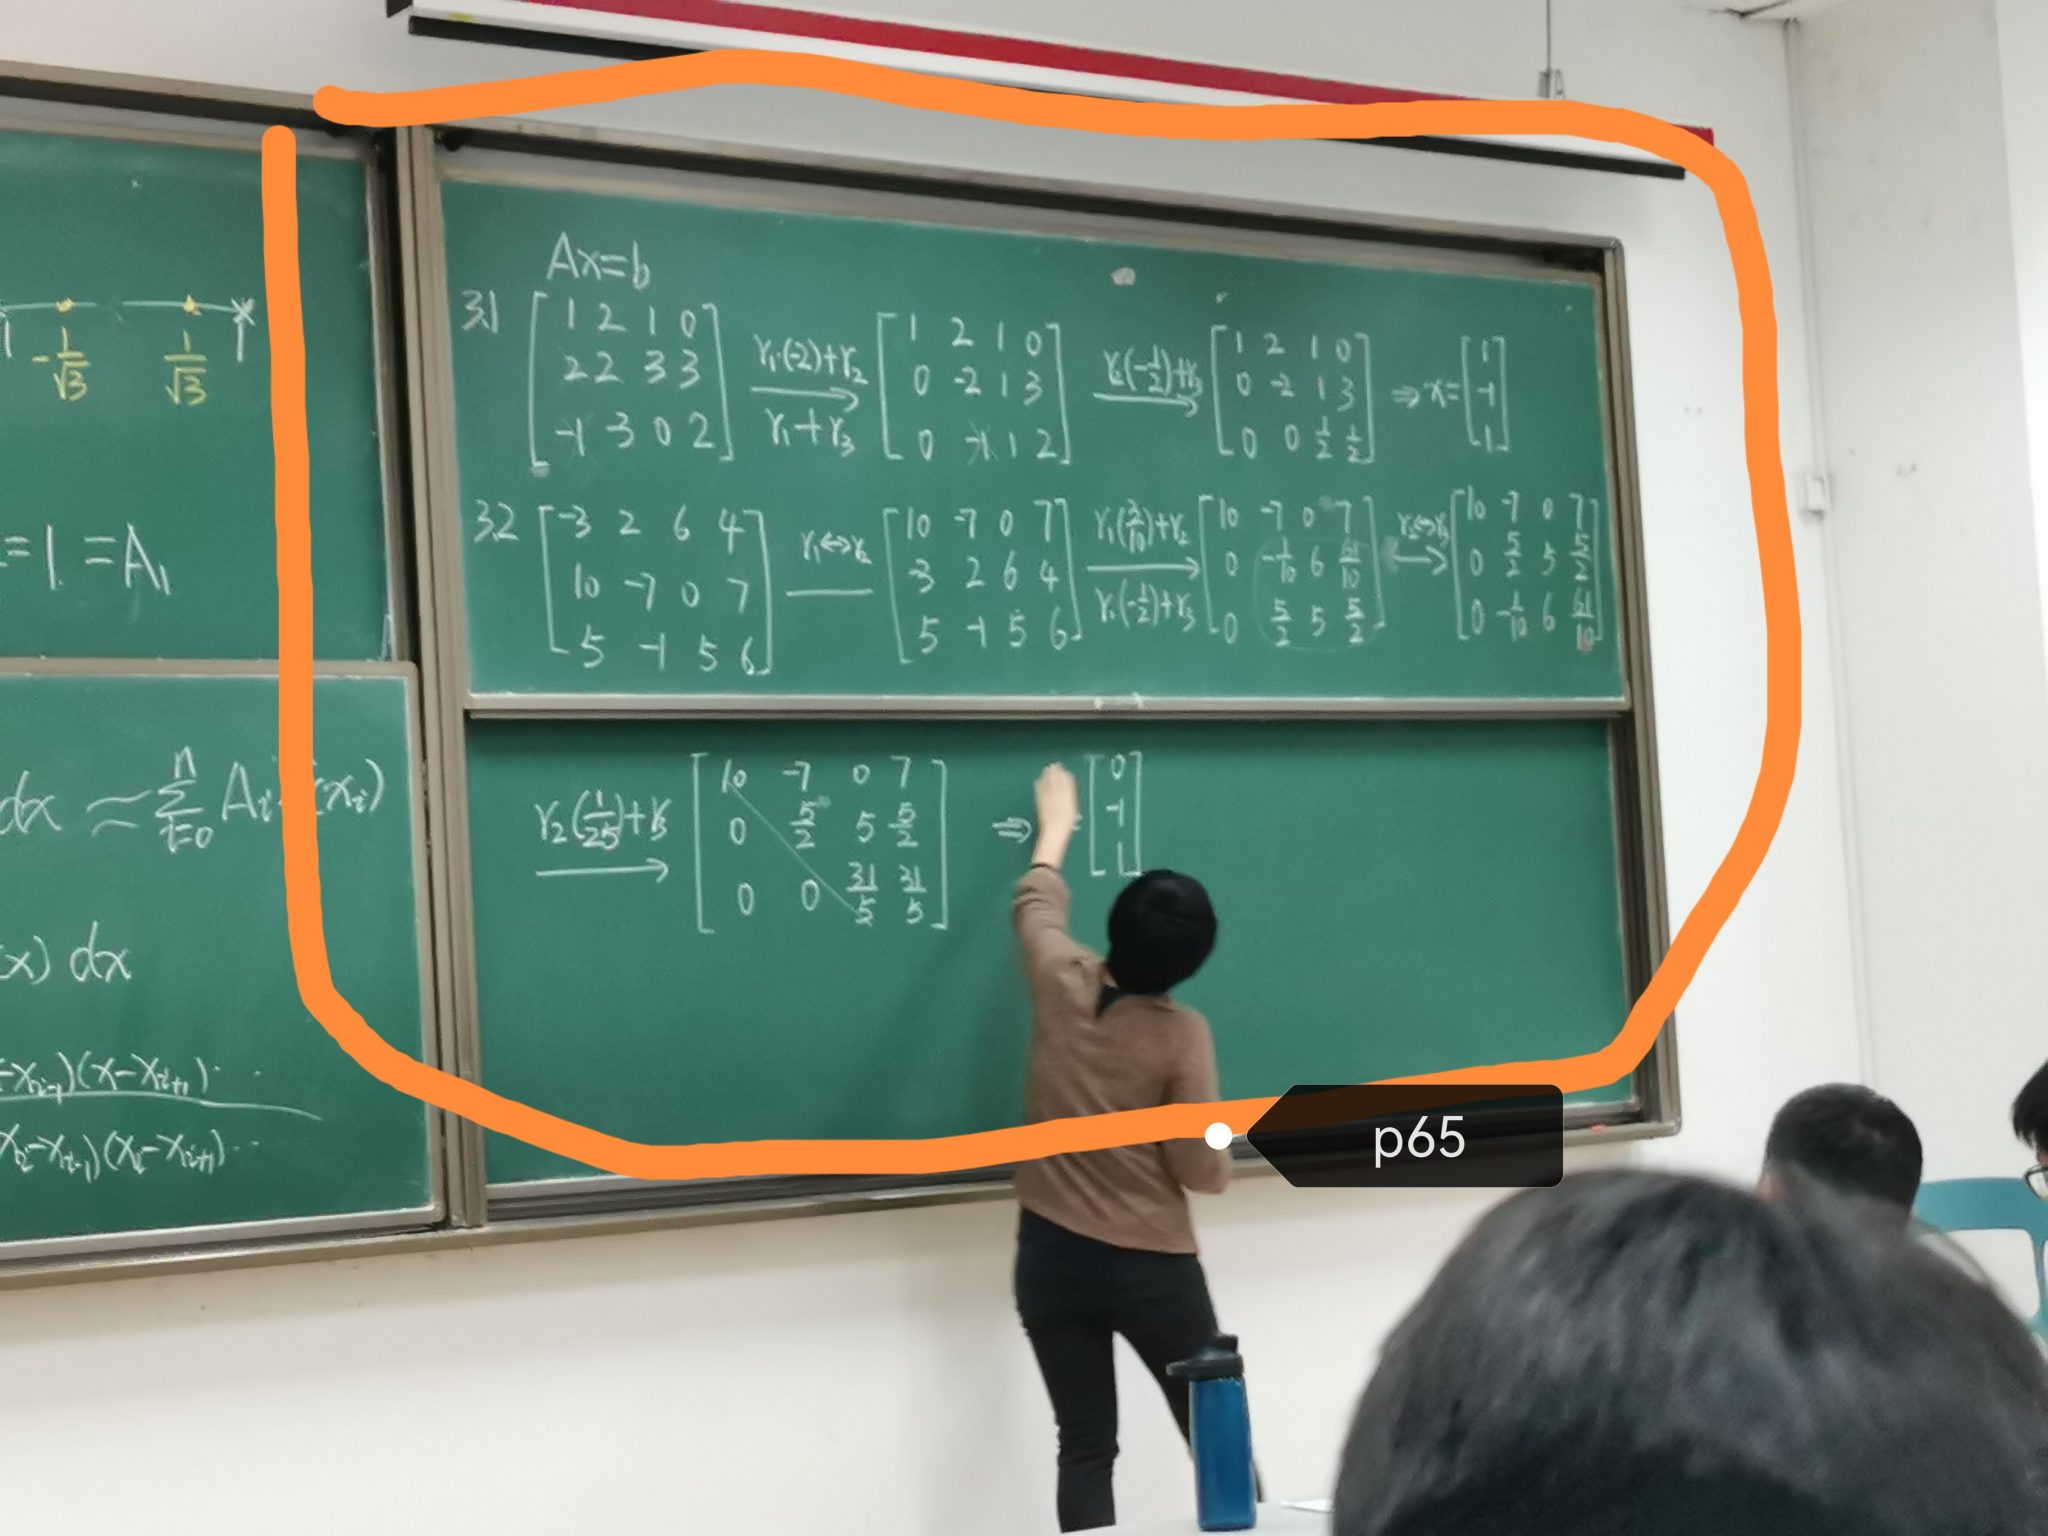 -1/√3 1/√3
=1 =A₁
dx ≈ ∑ᵢ₌₀ⁿ Aᵢ (xᵢ)
(x) dx
-xᵢ₋₁)(x-xᵢ₊₁)··
xᵢ-xᵢ₋₁)(xᵢ-xᵢ₊₁)··
Ax=b
3.1 [1 2 1 0; 2 2 3 3; -1 -3 0 2] r₁·(-2)+r₂ → r₁+r₃ [1 2 1 0; 0 -2 1 3; 0 -1 1 2] r₂(-1/2)+r₃ → [1 2 1 0; 0 -2 1 3; 0 0 1/2 1/2] ⇒ x=[1; -1; 1]
3.2 [-3 2 6 4; 10 -7 0 7; 5 -1 5 6] r₁↔r₂ [10 -7 0 7; -3 2 6 4; 5 -1 5 6] r₁(3/10)+r₂ → r₁(-1/2)+r₃ [10 -7 0 7; 0 -1/10 6 61/10; 0 5/2 5 5/2] r₂↔r₃ ↔ [10 -7 0 7; 0 5/2 5 5/2; 0 -1/10 6 61/10]
r₂(1/25)+r₃ → [10 -7 0 7; 0 5/2 5 5/2; 0 0 31/5 31/5] ⇒ = [0; -1; 1]
p65